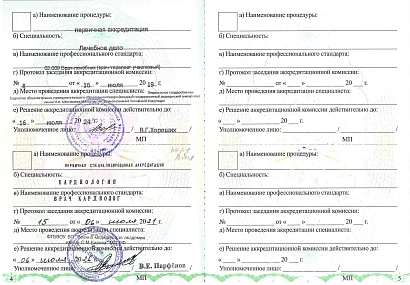 а) Наименование процедуры:
первичная аккредитация
б) Специальность:
Лечебное дело
в) Наименование профессионального стандарта:
02.009 Врач-лечебник (врач-терапевт участковый)
г) Протокол заседания аккредитационной комиссии:
№ от « 15 » июля 2019 г.
д) Место проведения аккредитации специалиста:
е) Решение аккредитационной комиссии действительно до:
« 15 » июля 2024 г.
Уполномоченное лицо: / В.Г.Хороших /
МП
а) Наименование процедуры:
ПЕРВИЧНАЯ СПЕЦИАЛИЗИРОВАННАЯ АККРЕДИТАЦИЯ
б) Специальность:
КАРДИОЛОГИЯ
в) Наименование профессионального стандарта:
ВРАЧ КАРДИОЛОГ
г) Протокол заседания аккредитационной комиссии:
№ 15 от « 06 » июля 2021 г.
д) Место проведения аккредитации специалиста:
е) Решение аккредитационной комиссии действительно до:
« 06 » июля
Уполномоченное лицо: / В.Е. Парфёнов /
4 МП
а) Наименование процедуры:
б) Специальность:
в) Наименование профессионального стандарта:
г) Протокол заседания аккредитационной комиссии:
№ от « » 20 г.
д) Место проведения аккредитации специалиста:
е) Решение аккредитационной комиссии действительно до:
« » 20 г.
Уполномоченное лицо: / /
МП
а) Наименование процедуры:
б) Специальность:
в) Наименование профессионального стандарта:
г) Протокол заседания аккредитационной комиссии:
№ от « » 20 г.
д) Место проведения аккредитации специалиста:
е) Решение аккредитационной комиссии действительно до:
« » 20 г.
Уполномоченное лицо: / /
МП 5